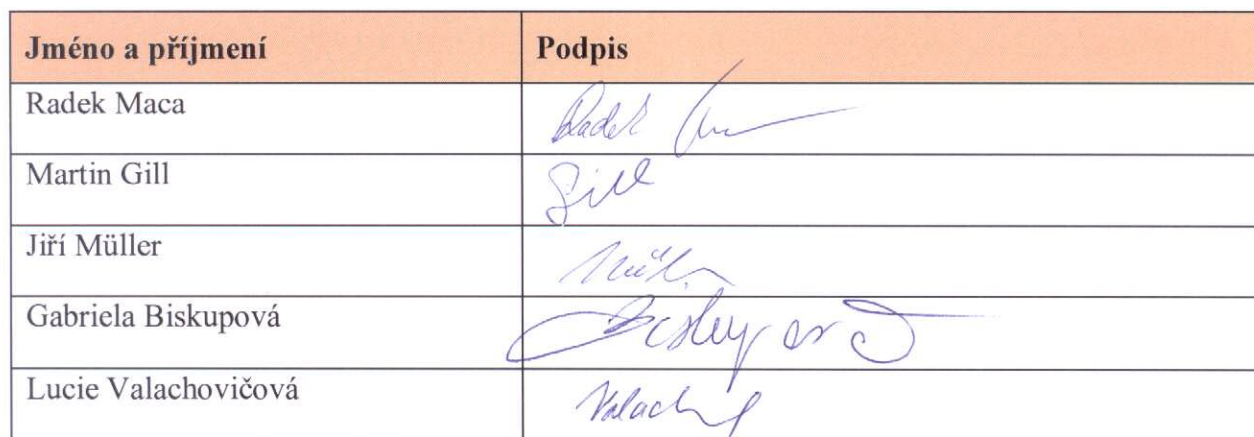 Jméno a příjmení Podpis
Radek Maca Radek
Martin Gill Gill
Jiří Müller
Gabriela Biskupová Biskupová
Lucie Valachovičová